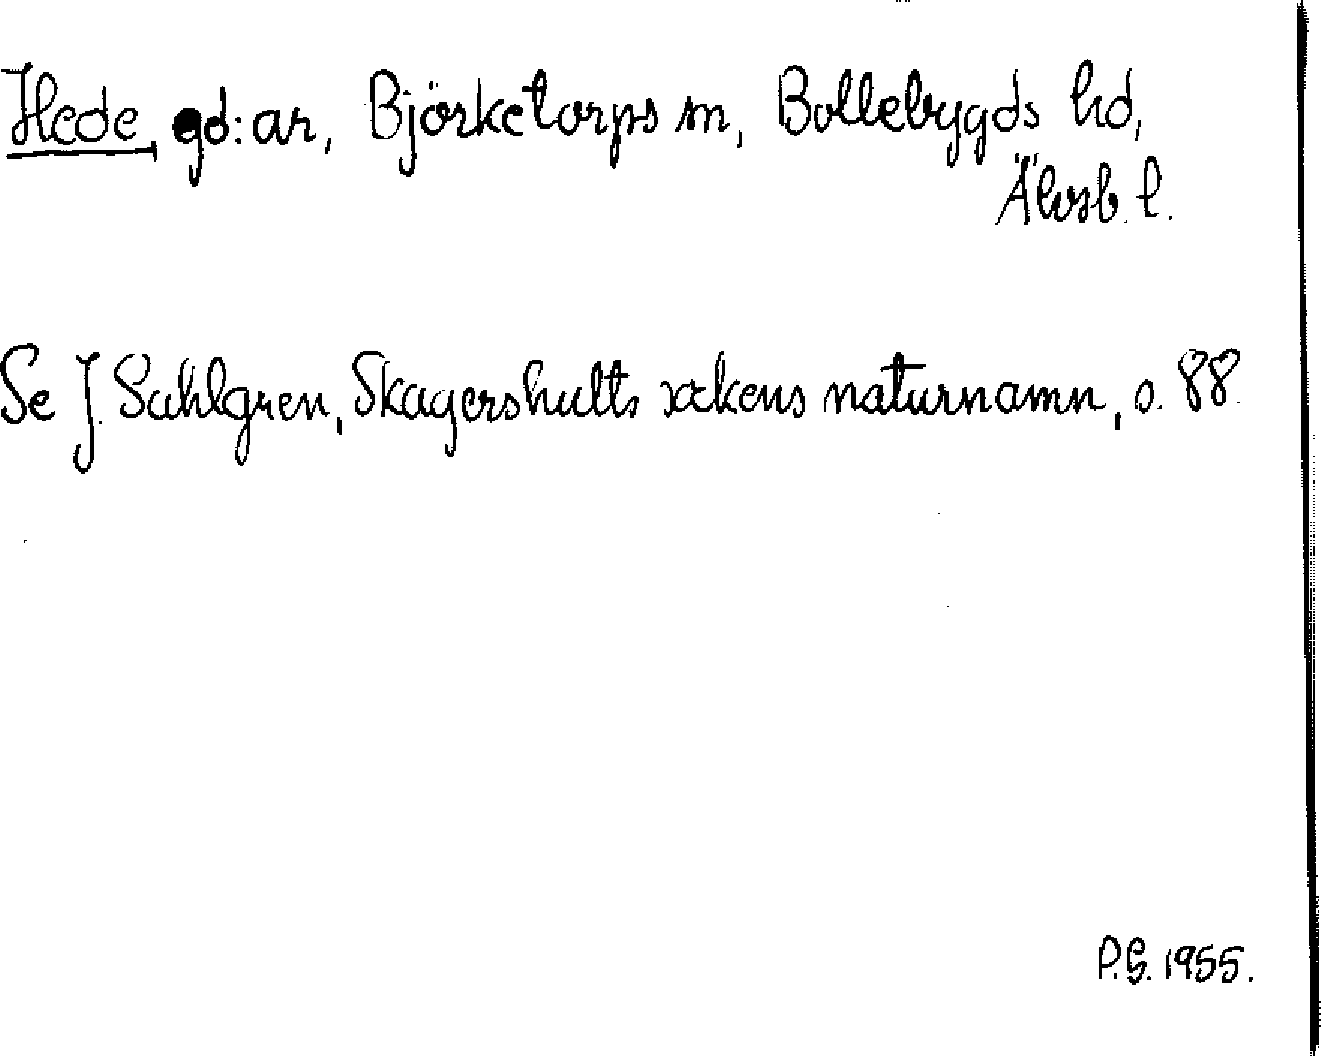 Hede, gd:ar, Björketorps sn, Bollebygds hd,
Älvsb. l.
Se J. Sahlgren, Skagershults sockens naturnamn, s. 88.
P.G. 1955.